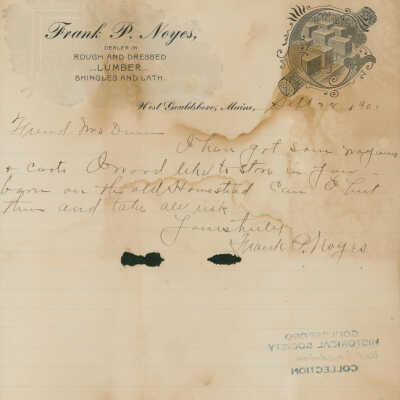 Frank P. Noyes,
DEALER IN
ROUGH AND DRESSED
...LUMBER...
SHINGLES AND LATH.
West Gouldsboro, Maine, Sept 190
Friend Mrs Dunn
I have got som wagons
& carts I wood like to store in your
barn on the old Homestead can I put
them and take all risk
Yours truly
Frank P. Noyes
GOULDSBORO
HISTORICAL SOCIETY
COLLECTION